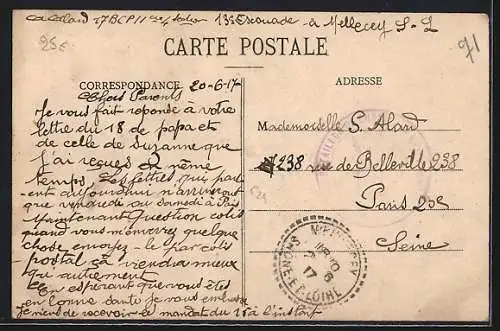 Alard 17 BCP 11e
13e Escouade - à Mellecey S-L
25€
71
CARTE POSTALE
CORRESPONDANCE
ADRESSE
20-6-17
Chers Parents
Je vous fait reponde à votre
lettre du 18 de papa et
de celle de Suzanne que
j'ai reçues en même
temps. Les lettres qui part
ent aujourdhui n'arriveront
que vendredi ou samedi à Paris
Maintenant Question colis
quand vous m'enverrez quelque
chose envoyez-le par colis
postal ça viendra mieux
qu autrement.
En esperant que vous êtes
en bonne santé je vous embrasse
Je viens de recevoir le mandat du 18 à l'instant
Mademoiselle S. Alard
238 rue de Belleville 238
Paris 20e
Seine
MELLECEY
20-6
17
SAONE-ET-LOIRE